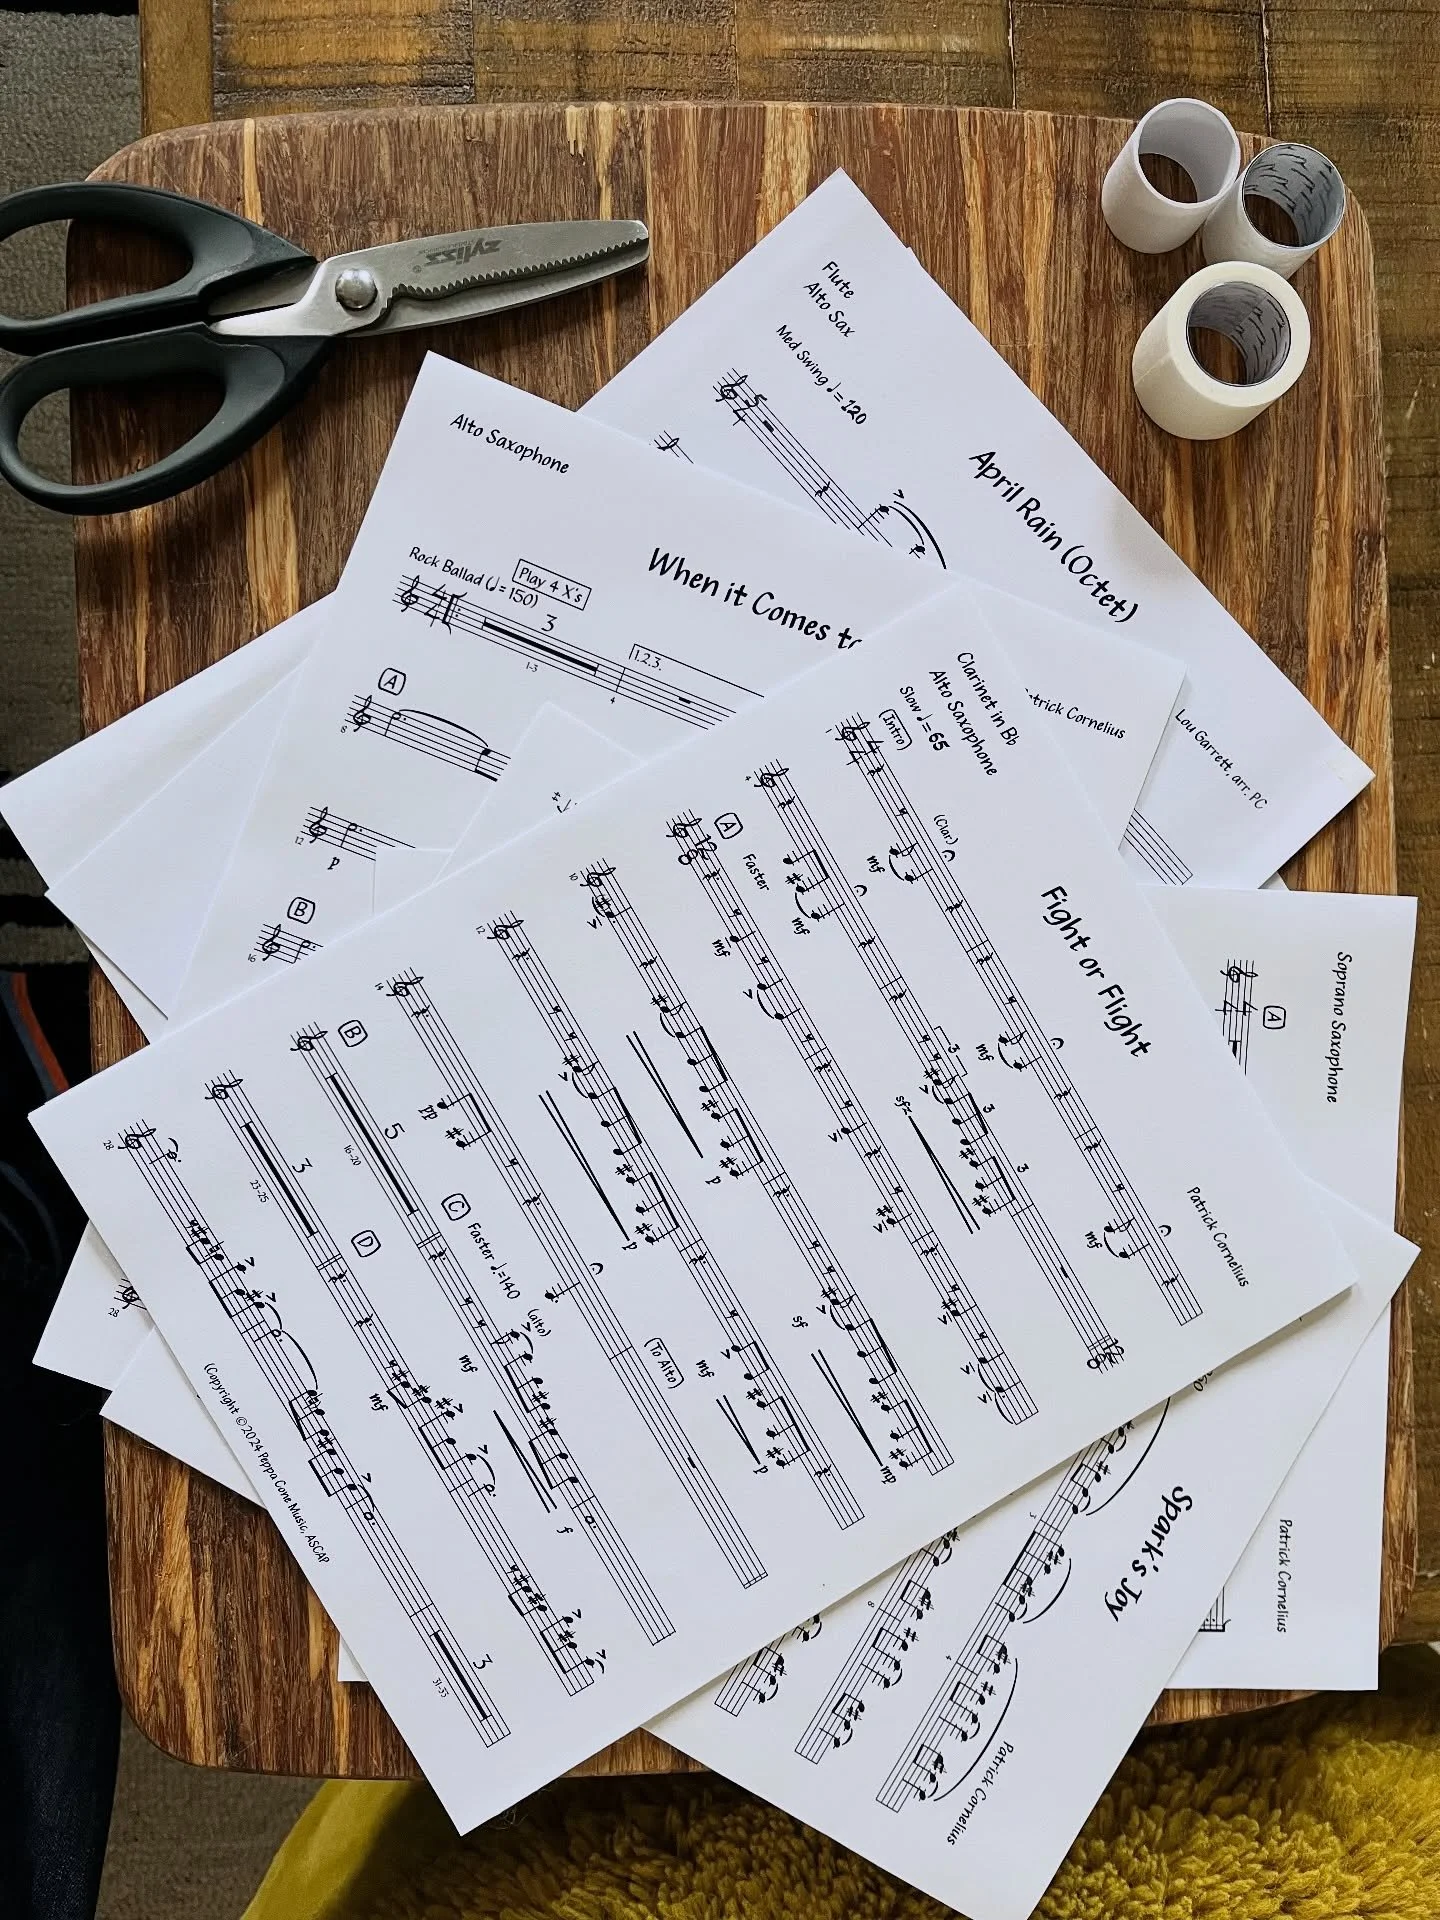 zyliss®
Flute
Alto Sax
Med Swing ♩= 120
April Rain (Octet)
Lou Garrett, arr. PC
Alto Saxophone
Rock Ballad (♩= 150)
Play 4 X's
When it Comes
3
1-3
1.2.3.
4
A
8
12
p
B
16
Patrick Cornelius
Clarinet in Bb
Alto Saxophone
Slow ♩= 65
Fight or Flight
Patrick Cornelius
Intro
(Clar.)
1
mf
mf
mf
4
mf
3
3
3
sfz
A
Faster
12
8
mf
10
p
sf
mp
12
p
mf
p
14
pp
(To Alto)
B
5
16-20
C
Faster ♩.=140
(alto)
mf
f
3
23-25
D
mf
28
3
31-33
(Copyright ©2024 Peppa Cone Music, ASCAP
Soprano Saxophone
A
Patrick Cornelius
Spark's Joy
Patrick Cornelius
3
4
8
28